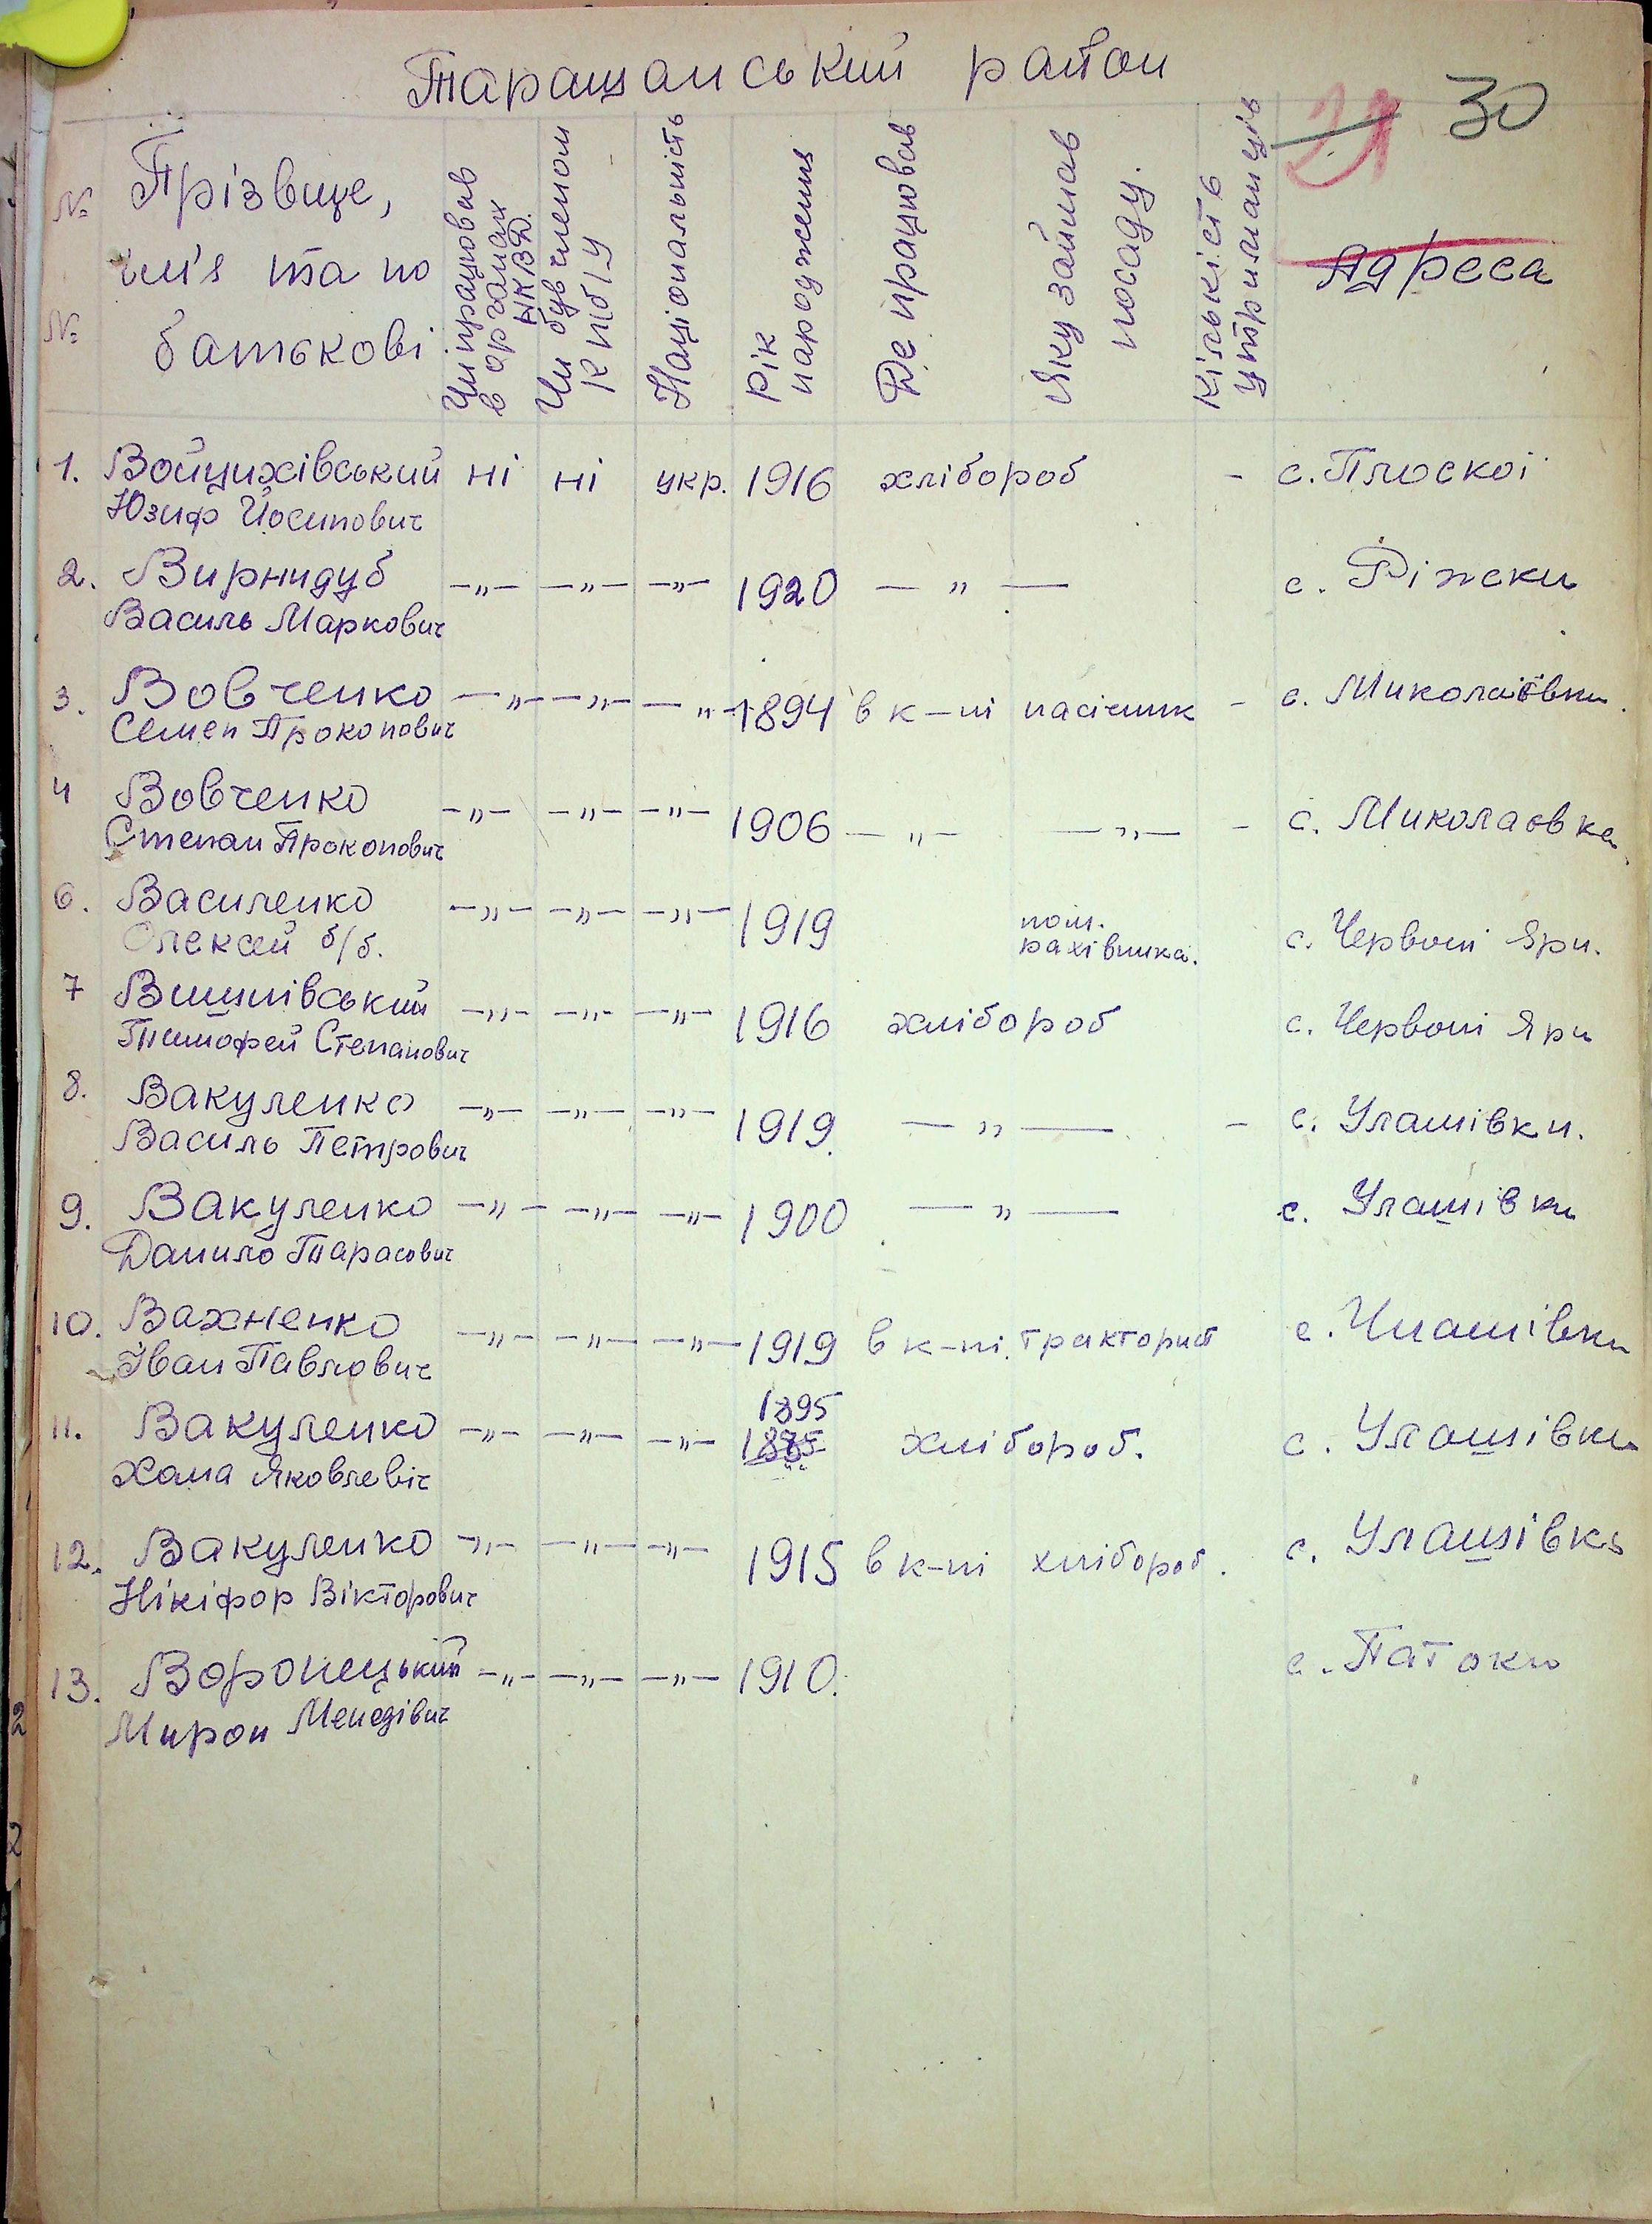 Таращанський район
21 30
№ №
Прізвище,
им'я та по
батькові
Чи працював
в органах
НКВД.
Чи був членом
КП(б)У
Національність
Рік
народження
Де працював
Яку займав
посаду.
Кількість
утриманців
Адреса
1. Войцихівський ні ні укр. 1916 хлібороб - с. Плоскої
Юзиф Йосипович
2. Вирнидуб —„— —„— —„— 1920 — „ — с. Ріжки
Василь Маркович
3. Вовченко —„— —„— —„— 1894 в к-пі пасічник - с. Миколаївки.
Семен Прокопович
4 Вовченко —„— —„— —„— 1906 —„— —„— - с. Миколаовка
Степан Прокопович
6. Василенко —„— —„— —„— 1919 пом. рахівника. с. Червоні Яри.
Олексей б/б.
7 Вишнівський —„— —„— —„— 1916 хлібороб с. Червоні Яри
Тимофей Степанович
8. Вакуленко —„— —„— —„— 1919. — „ — - с. Улашівки.
Василь Петрович
9. Вакуленко —„— —„— —„— 1900 — „ — с. Улашівки
Данило Тарасович
10. Вахненко —„— —„— —„— 1919 в к-пі. тракторист с. Улашівки
Іван Павлович
1895
11. Вакуленко —„— —„— —„— 1885 хлібороб. с. Улашівки
Хома Яковлевіч
12. Вакуленко —„— —„— —„— 1915 в к-пі хлібороб. с. Улашівка
Нікіфор Вікторович
13. Воронецький —„— —„— —„— 1910. с. Патоки
Мирон Менедівич
2
2